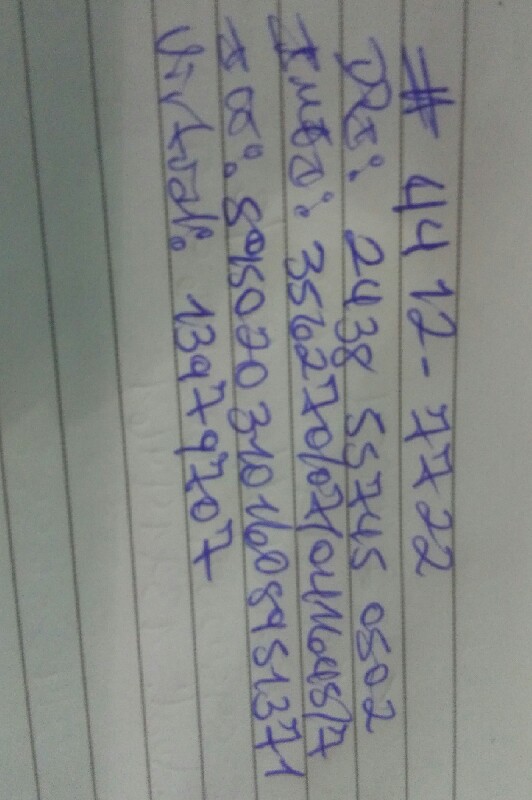 # 4412-7722
DPI: 2438 55745 0502
IMEI: 356270/07/041645/7
ICC: 8950203101608951371
Virtual: 13979707